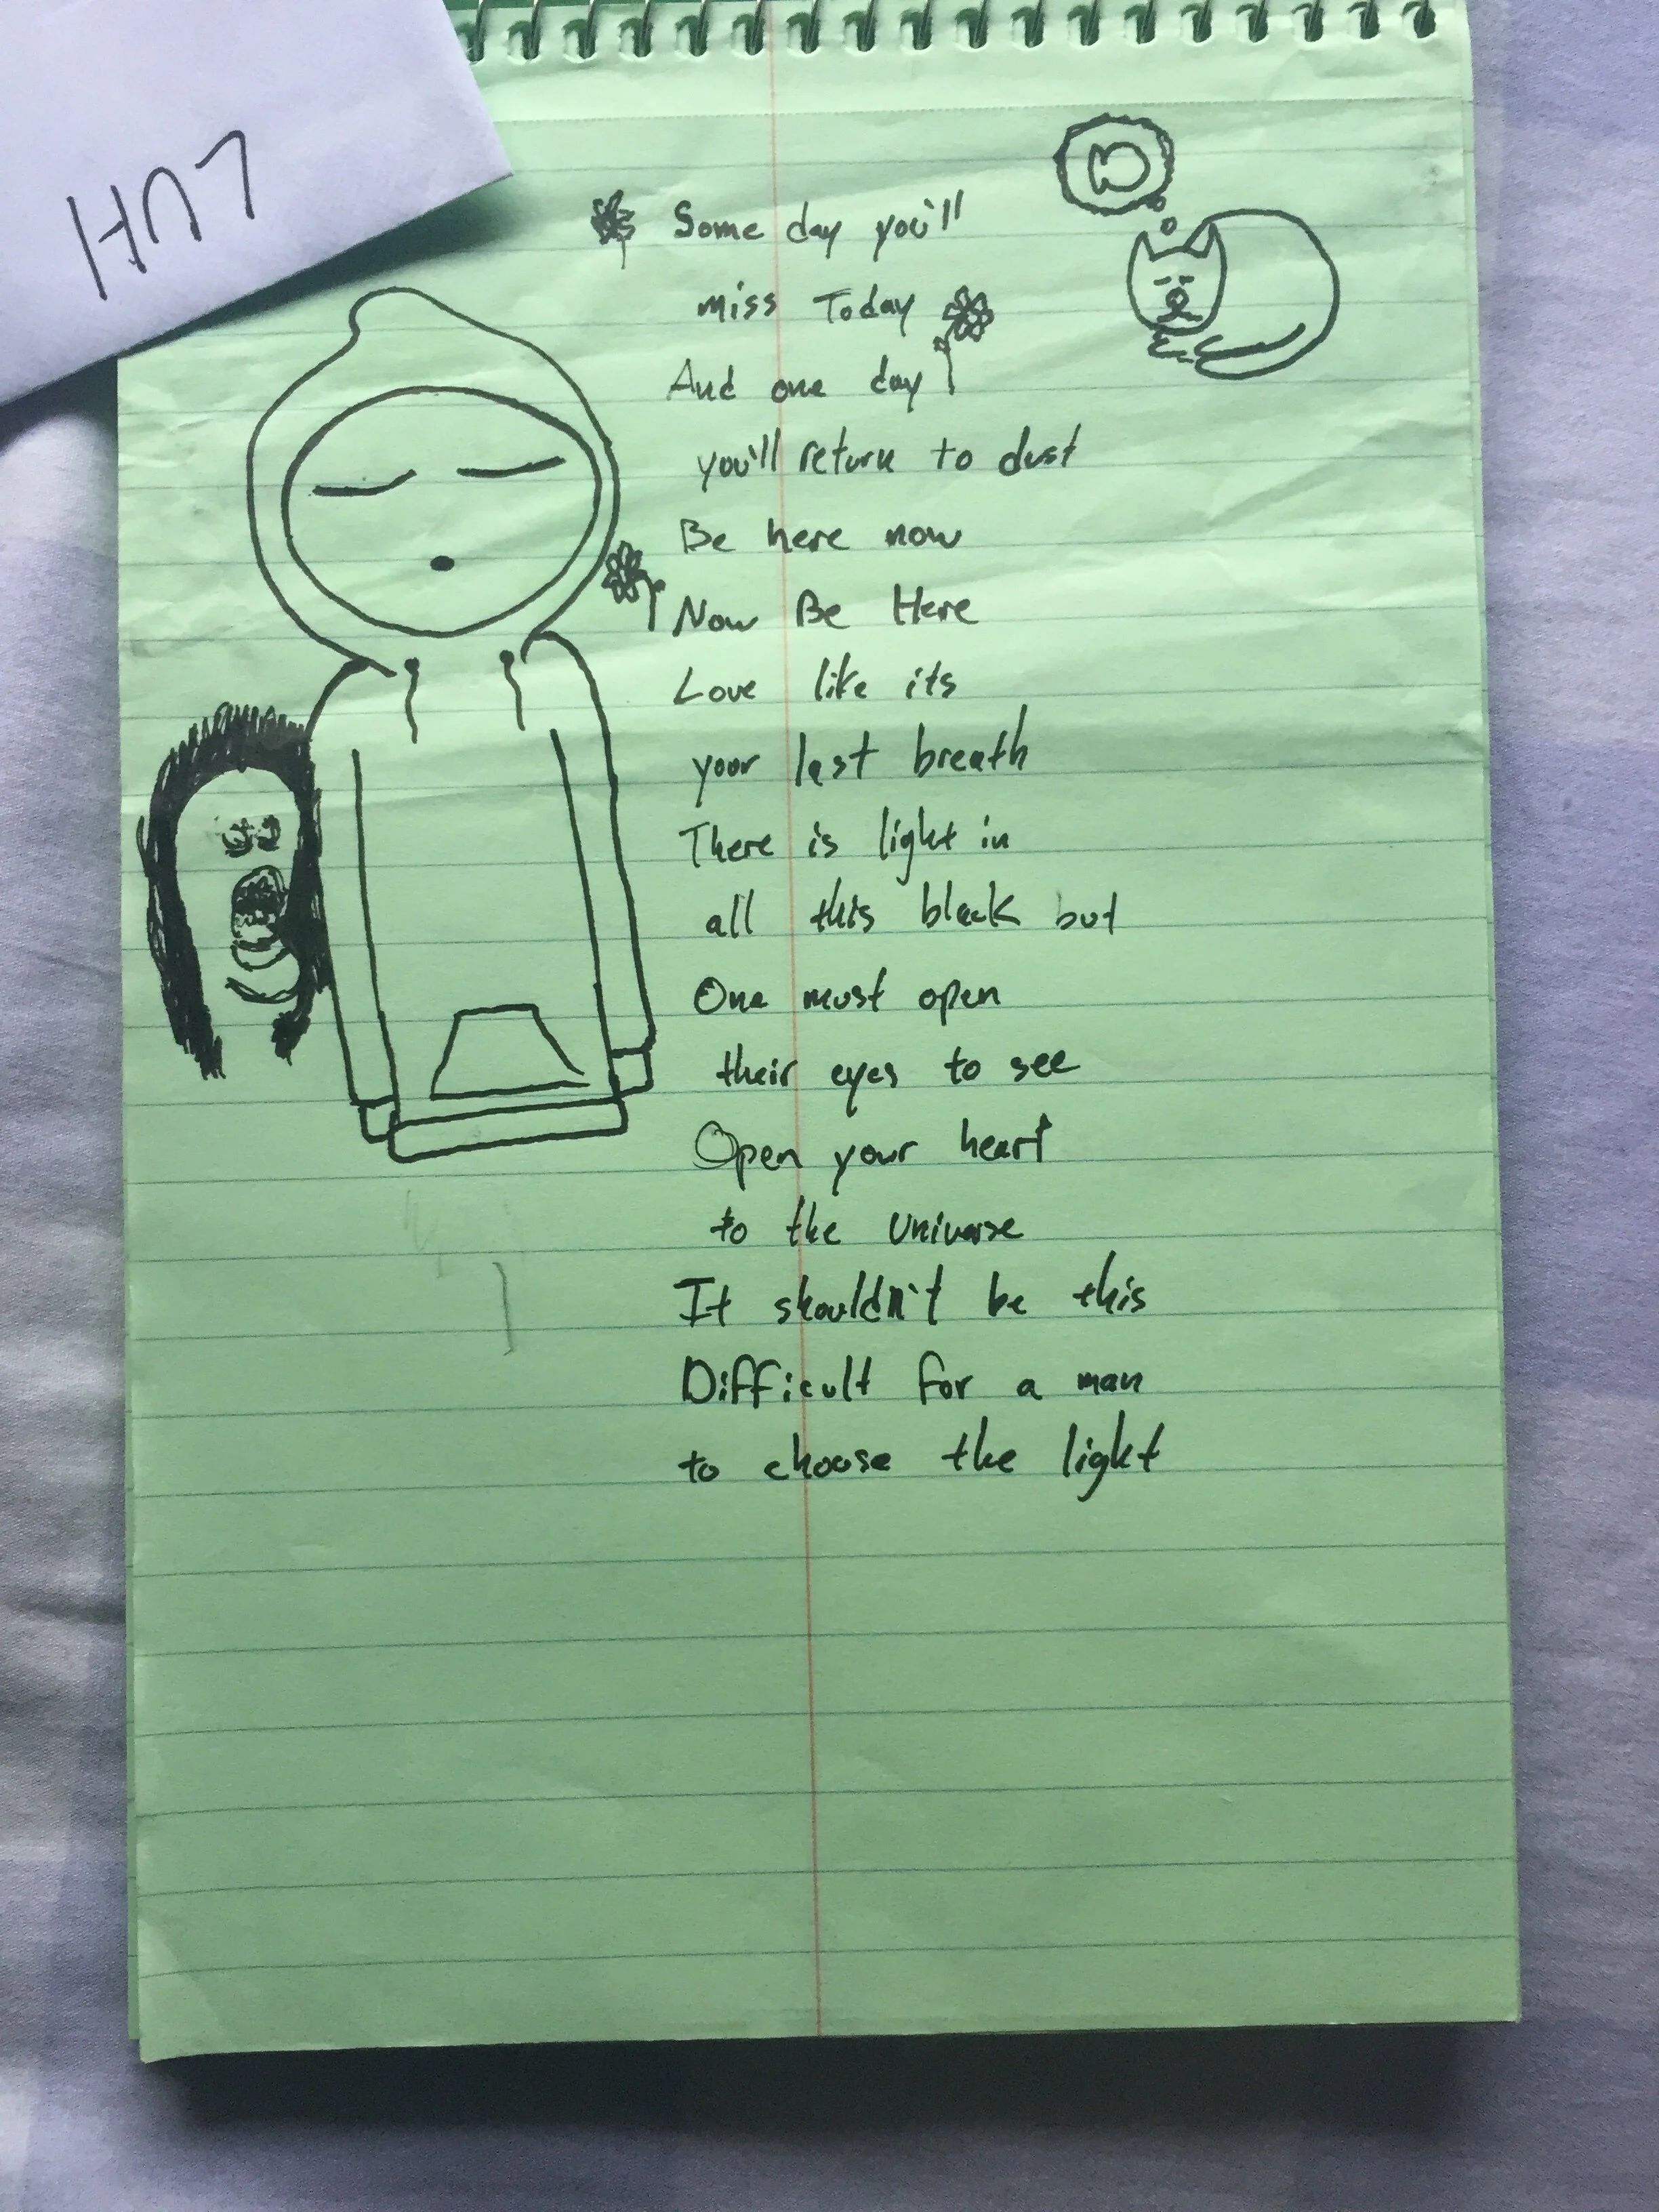 Some day you'll
miss Today
And one day
you'll return to dust
Be here now
Now Be Here
Love like its
your last breath
There is light in
all this black but
One must open
their eyes to see
Open your heart
to the Universe
It shouldn't be this
Difficult for a man
to choose the light